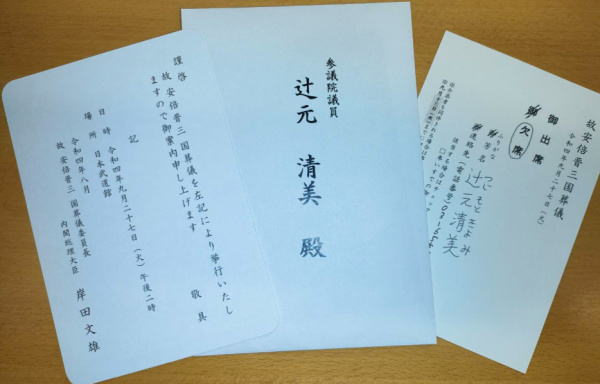 謹啓
故安倍晋三国葬儀を左記により挙行いたし
ますので御案内申し上げます
敬具
記
日時 令和四年九月二十七日（火）午後二時
場所 日本武道館
令和四年八月
故安倍晋三国葬儀委員長
内閣総理大臣 岸田文雄
参議院議員
辻元 清美 殿
故安倍晋三国葬儀
令和四年九月二十七日（火）
御出席
欠席
ふりがな つじもときよみ
芳名 辻元清美
連絡先 電話番号